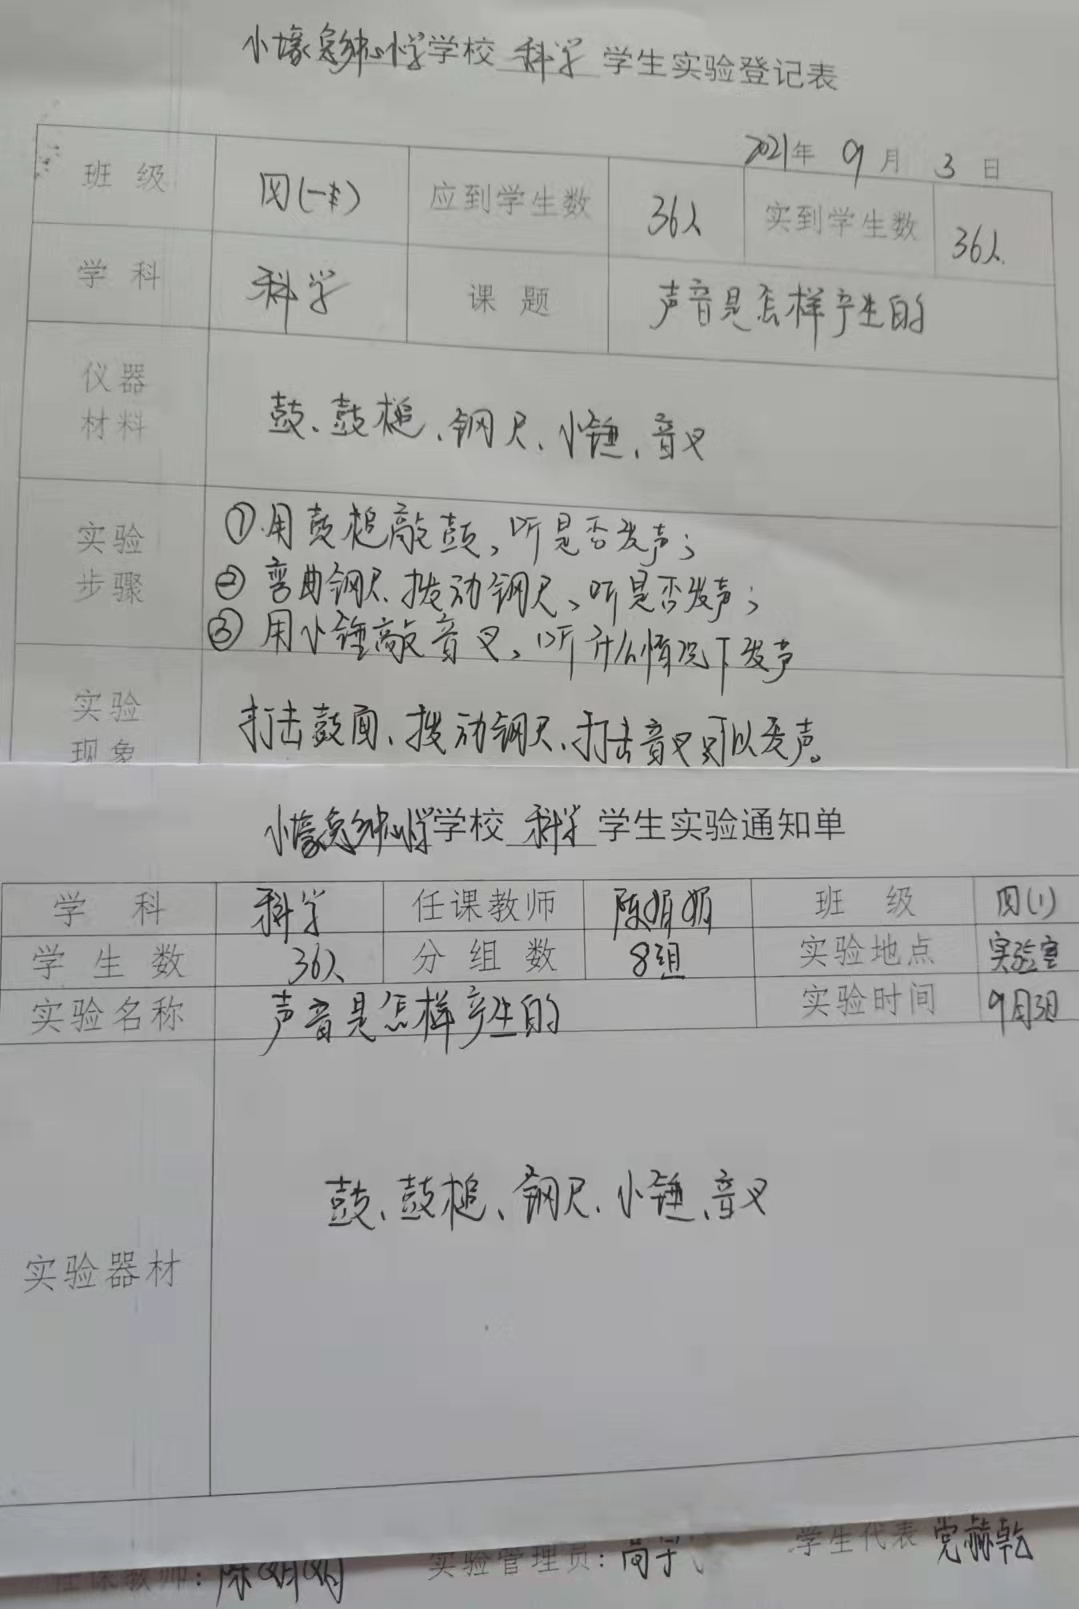 小壕兔乡中心小学学校 科学 学生实验登记表
2021年 9月 3日
班级 四(一) 应到学生数 36人 实到学生数 36人
学科 科学 课题 声音是怎样产生的
仪器材料 鼓、鼓槌、钢尺、小锤、音叉
实验步骤 ①用鼓槌敲鼓,听是否发声;
②弯曲钢尺、拨动钢尺,听是否发声;
③用小锤敲音叉,听什么情况下发声
实验现象 打击鼓面、拨动钢尺、打击音叉可以发声。
小壕兔乡中心小学学校 科学 学生实验通知单
学科 科学 任课教师 陈娟娟 班级 四(1)
学生数 36人 分组数 8组 实验地点 实验室
实验名称 声音是怎样产生的 实验时间 9月3日
实验器材 鼓、鼓槌、钢尺、小锤、音叉
任课教师: 陈娟娟 实验管理员: 学生代表 党赫乾